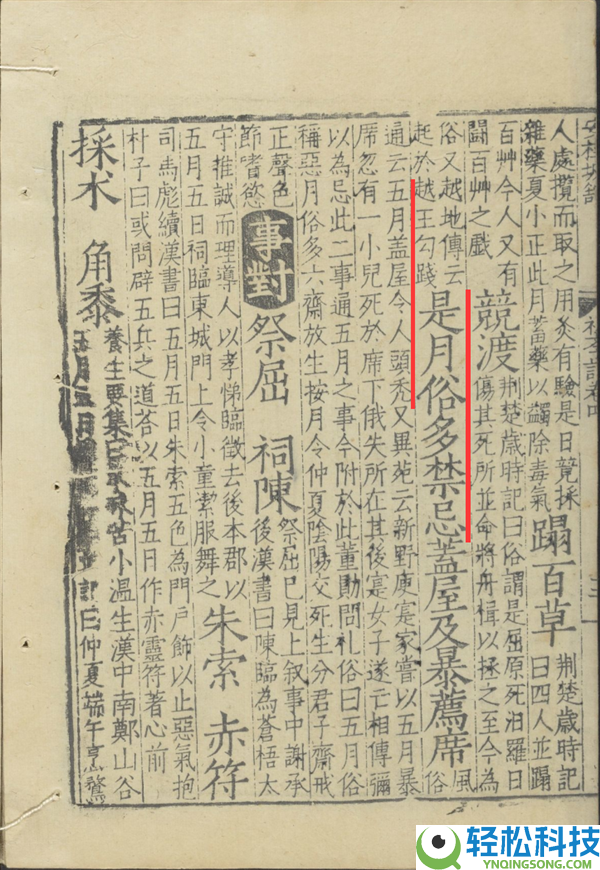 安桂坡館
初學記卷四
人處攬而取之用灸有驗是日競採
雜藥夏小正此月蓄藥以蠲除毒氣
蹋百草
荆楚歲時記
曰四人並蹋
百艸今人又有
鬪百艸之戲
競渡
荆楚歲時記曰俗謂是屈原死汨羅日
傷其死所並命將舟檝以拯之至今為
俗又越地傳云
起於越王勾踐
是月俗多禁忌蓋屋及暴薦席
風
俗
通云五月盖屋令人頭禿又異苑云新野庾寔家嘗以五月暴
席忽有一小兒死於席下俄失所在其後寔女子遂亡相傳彌
以為忌此二事通五月之事今附於此董勛問礼俗曰五月俗
稱惡月俗多六齋放生按月令仲夏陰陽交死生分君子齋戒
正聲色
節嗜慾
事對
祭屈 祠陳
祭屈已見上叙事中謝承
後漢書曰陳臨為蒼梧太
守推誠而理導人以孝悌臨徵去後本郡以
五月五日祠臨東城門上令小童潔服舞之
朱索 赤符
司馬彪續漢書曰五月五日朱索五色為門户飾以止惡氣抱
朴子曰或問辟五兵之道荅以五月五日作赤靈符著心前
採朮 角黍
養生要集曰朮味苦小温生漢中南鄭山谷
五月五日記曰仲夏端午烹鶩
轻松科技
YNQINGSONG.COM